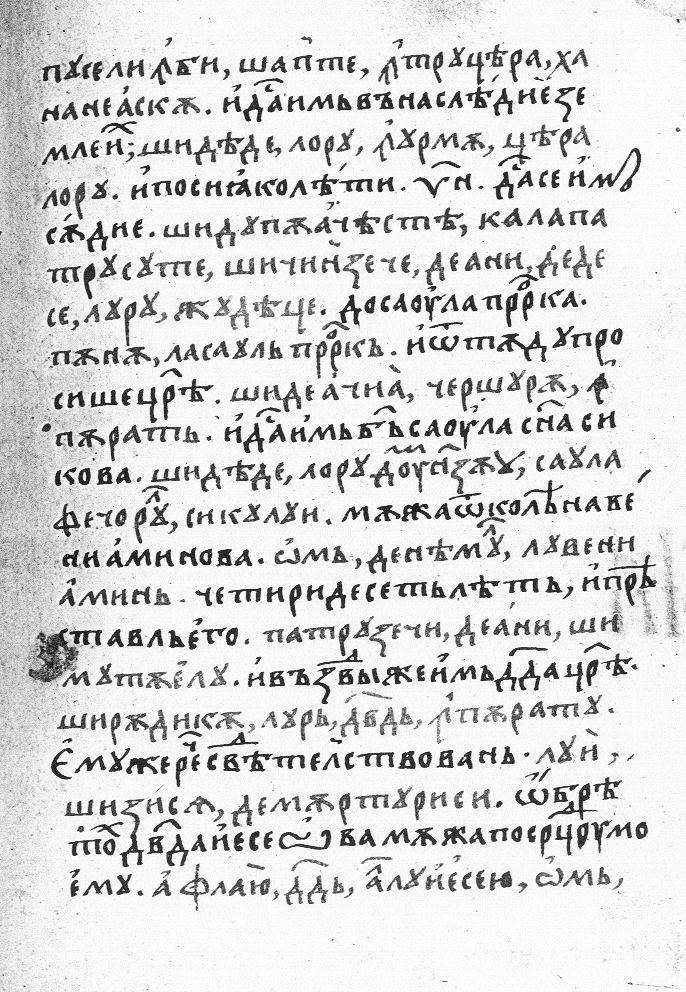 пꙋсели л҆би, шап҆те, л҆трꙋцѣра, ха
нанеа҆скѫ. и҆дⷭ҇аимьвънаслѣ́дїеꙁе
млеи҆хь; шидѣде, лорꙋ, л҆ꙋрмѫ, цѣра
лорꙋ. и҆посиꙗколѣ́ти. ѵ҃н. дⷭ҇асеи҆мь
сꙙ́дие. шидꙋпѫа҆чѣстѣ, кѫлапа
трꙋсꙋте, шичин҆ꙁече, деани, де́де
се, лꙋрꙋ, жꙋдѣце. досаоу҆лапрⷪ҇рка.
пѫнѫ, ласаꙋль прⷪ҇ркь. и҆ѿтѫдꙋпро
сишецр҃ѣ. шидеа҆чиа̀, чершꙋрѫ, л҆
пѫрать. и҆дⷭ҇аимьб҃ъсаоу҆ласн҃аси
кова. шидѣде, лорꙋдоⷨнꙁѫꙋ҆, саꙋла
фечорꙋⷧ҇, сикꙋлꙋи. мѫжаѿколѣнаве́
ниаминова. ѡ҆мь, денѣмꙋⷧ҇, лꙋвени
а҆минь. четиридесетьлѣть, и҆прѣ
ставлье҆го. патрꙋꙁечи, деани, ши
мꙋтѫе҆лꙋ. и҆въꙁⷣвыжеи҆мьдд҃ацр҃ѣ.
ширѫдикѫ, лꙋрь, дв҃дь, л҆пѫратꙋ.
е҆мꙋжереⷱ҇свѣⷣтелствовань. лꙋѝ,
шиꙁи́сѧ, демѫртꙋриси. ѡ҆брѣ
тоⷯ҇дв҃даи҆есеѡ҆ва мѫжапосрⷣцꙋмо
е҆мꙋ. а҆флаю̀, дд҃ь, а҆лꙋи҆е҆сею, ѡ҆мь,